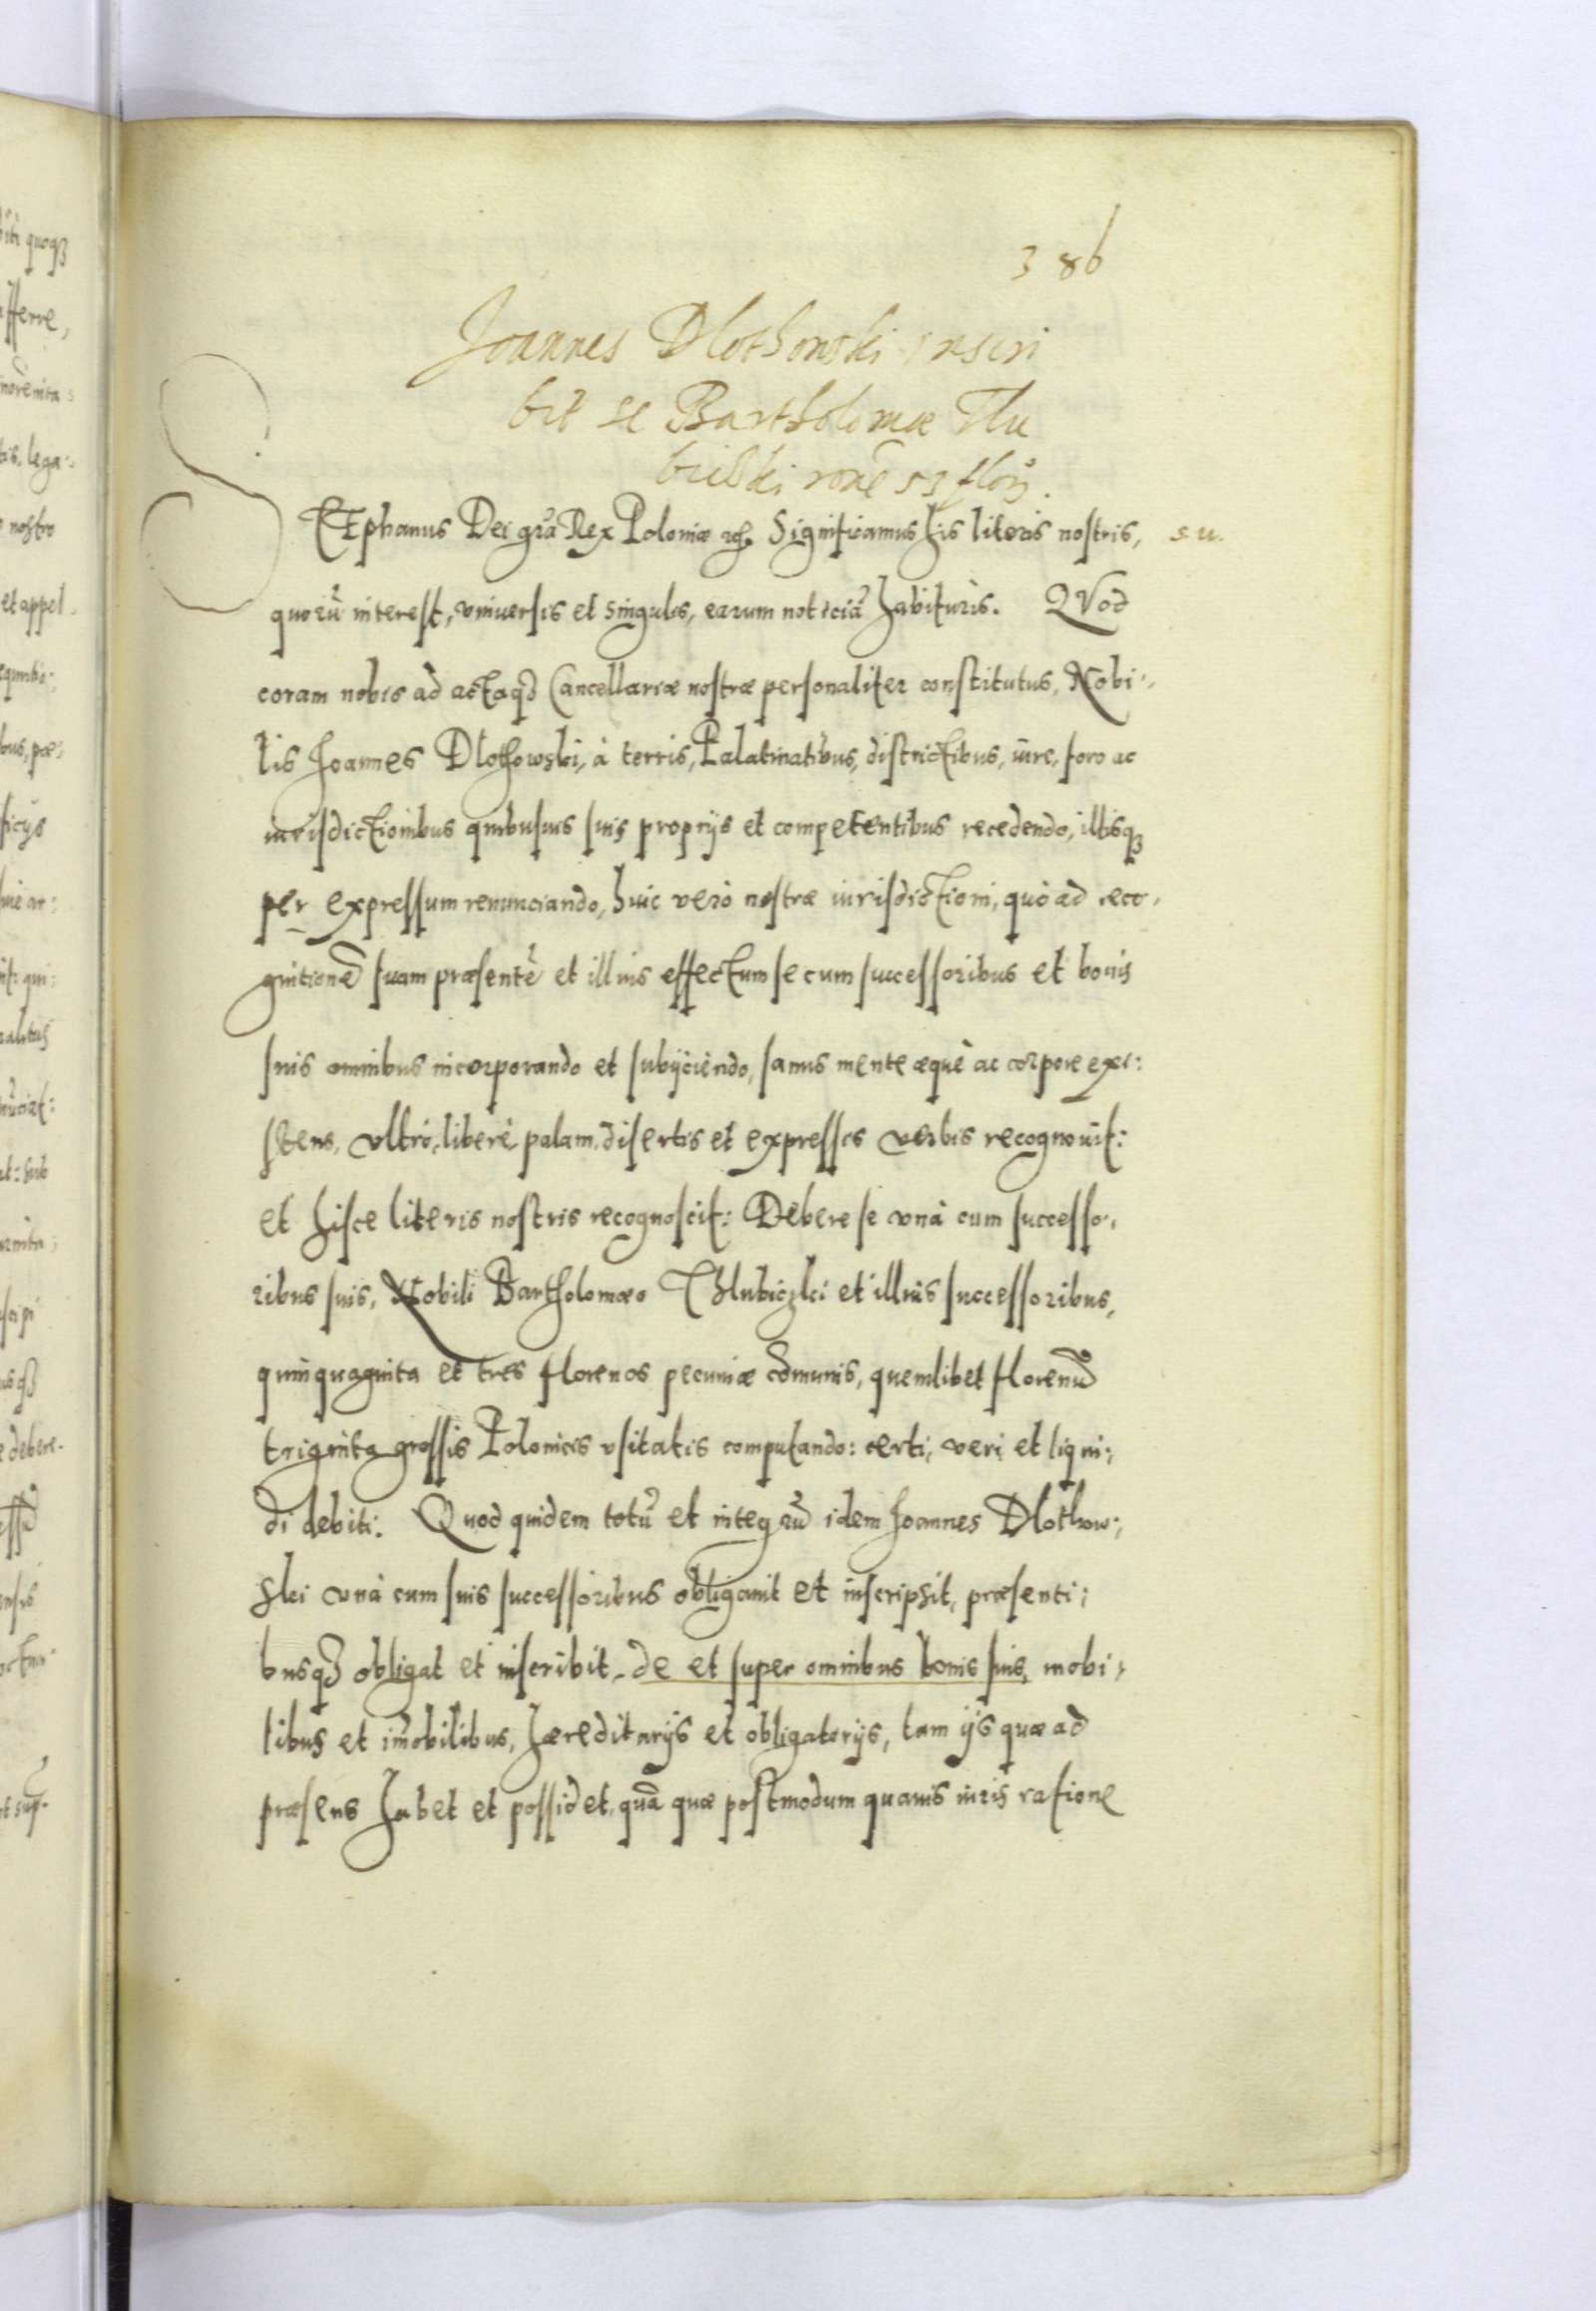 386
Joannes Dlothowski inscri
bit se Bartholomæ Tlu
bicski rōne 53 flor.
STEphanus Dei grā Rex Poloniæ etc. Significamus his literis nostris, s. u.
quorū interest, vniuersis et singulis, earum noticiā habituris. QVod
coram nobis ad actaq3 Cancellariæ nostræ personaliter constitutus, Nobi:
lis Joannes Dlothowski, à terris, Palatinatibus, districtibus, iure, foro ac
iurisdictionibus quibusuis suis proprijs et competentibus recedendo, illisq3
per expressum renunciando, huic verò nostræ iurisdictioni, quò ad reco:
gnitionē suam præsentē et illius effectum se cum successoribus et bonis
suis omnibus incorporando et subijciendo, sanus mente æquè ac corpore exi:
stens, vltrò, liberè, palam, disertis et expressis verbis recognouit:
et hisce literis nostris recognoscit: Debere se vnà cum successo:
ribus suis, Nobili Bartholomæo Thlubiczki et illius successoribus,
quinquaginta et tres florenos pecuniæ cōmunis, quemlibet florenū
triginta grossis Polonicis vsitatis computando: certi, veri et liqui:
di debiti. Quod quidem totū et integrū idem Joannes Dlothow:
ski vnà cum suis successoribus obligauit et inscripsit, præsenti:
busq3 obligat et inscribit, de et super omnibus bonis suis, mobi:
libus et im̄obilibus, hæreditarijs et obligatorijs, tam ijs quæ ad
præsens habet et possidet, quā quæ postmodum quauis iuris ratione